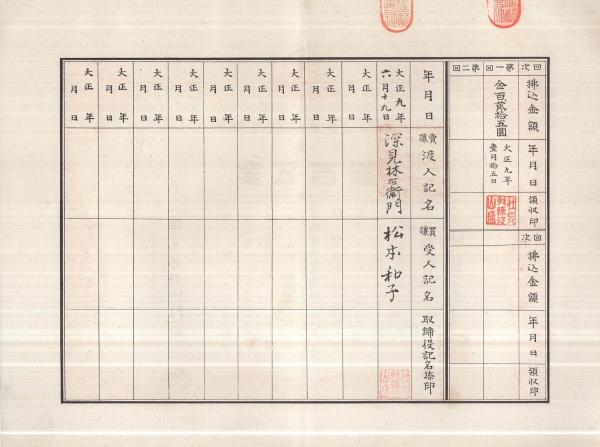 回次
拂込金額
年月日
領収印
第一回
金百貳拾五圓
大正九年
壹月拾五日
第二回
回次
拂込金額
年月日
領収印
年月日
賣讓渡人記名
買讓受人記名
取締役記名捺印
大正九年
六月十九日
深見林右衞門
松本和子
大正 年
月 日
大正 年
月 日
大正 年
月 日
大正 年
月 日
大正 年
月 日
大正 年
月 日
大正 年
月 日
大正 年
月 日